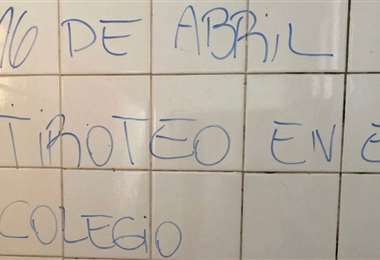 16 DE ABRIL
TIROTEO EN E
COLEGIO